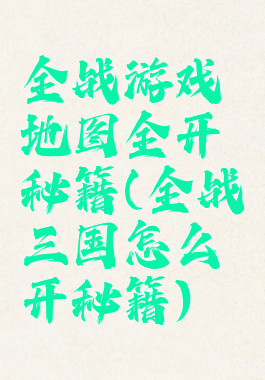 全战游戏
地图全开
秘籍(全战
三国怎么
开秘籍)